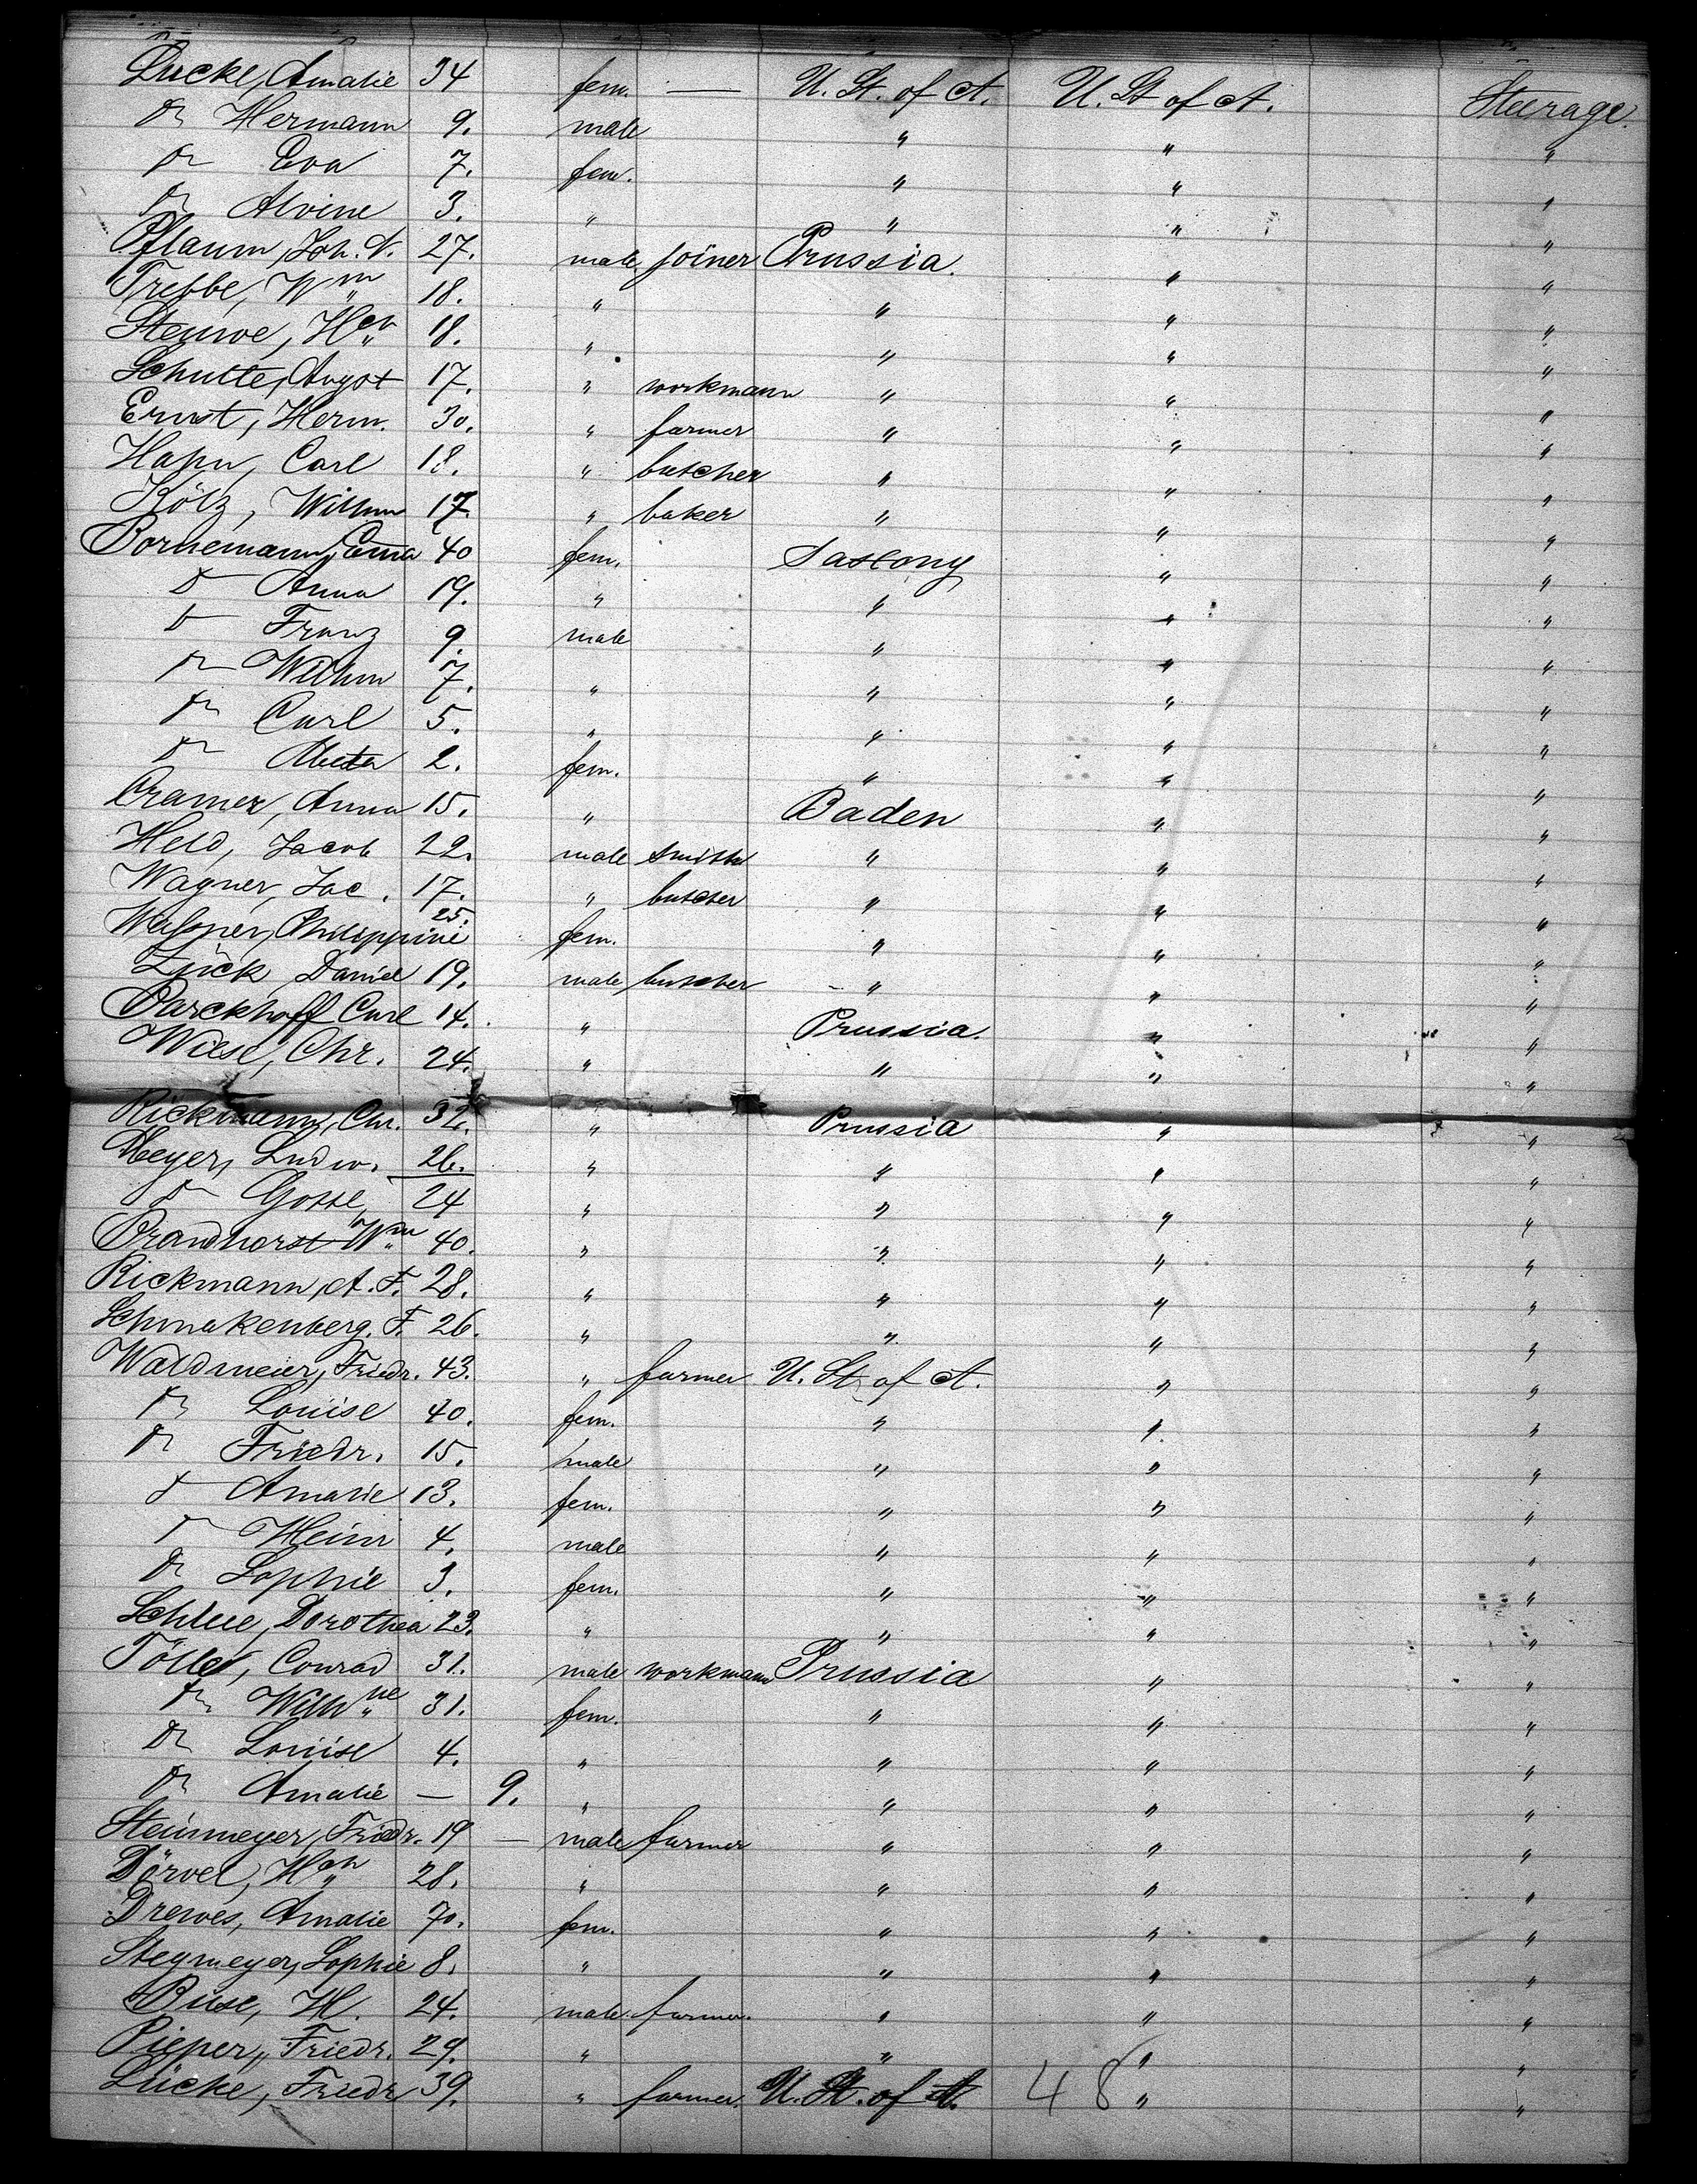 Lücke, Amalie 34 fem. — U. St. of A. U. St of A. Steerage.
do Hermann 9. male " " "
do Eva 7. fem. " " "
do Alvine 3. " " " "
Pflaum, Joh. N. 27. male. joiner Prussia. " "
Trebbe, Wm 18. " " " "
Steuwe, Hch 18. " " " "
Schutte, Augst 17. " workmann " " "
Ernst, Herm. 30. " farmer " " "
Hahn, Carl 18. " butcher " " "
Kölz, Wilhm 17. " baker " " "
Bornemann, Ema 40 fem. Saxony " "
do Anna 19. " " " "
do Franz 9. male " " "
do Wilhm 7. " " " "
do Carl 5. " " " "
do Meta 2. fem. " " "
Cramer, Anna 15. " Baden " "
Held, Jacob 22. male smith " " "
Wagner, Jac. 17. " butcher " " "
Philippine 25. fem. " " "
Zück, Daniel 19. male butcher " " "
Parckhoff Carl 14. " Prussia. " "
Wiese, Chr. 24. " " " "
Rickmann, Chr. 32. " Prussia " "
Meyer, Ludw. 26. " " " "
do 24 " " " "
Brandhorst Wm 40. " " " "
Rickmann, A. F. 28. " " " "
Schnakenberg. F. 26. " " " "
Waldmeier, Friedr. 43. " farmer U. St. of A. " "
do Louise 40. fem. " " "
do Friedr. 15. male " " "
do Amalie 13. fem. " " "
do Heinr 4. male " " "
do Sophie 3. fem. " " "
Schlue, Dorothea 23. " " " "
Tölle, Conrad 31. male workmann Prussia " "
do Wilhne 31. fem. " " "
do Louise 4. " " " "
do Amalie — 9. " " " "
Steinmeyer, Friedr. 19 — male farmer " " "
Dörvel, Hch 28. " " " "
Drewes, Amalie 70. fem. " " "
Stegmeyer, Sophie 8. " " " "
Buse, H. 24. male farmer. " " "
Pieper, Friedr. 29. " " " "
Lücke, Friedr 39. " farmer. U. St. of A. 48 " "